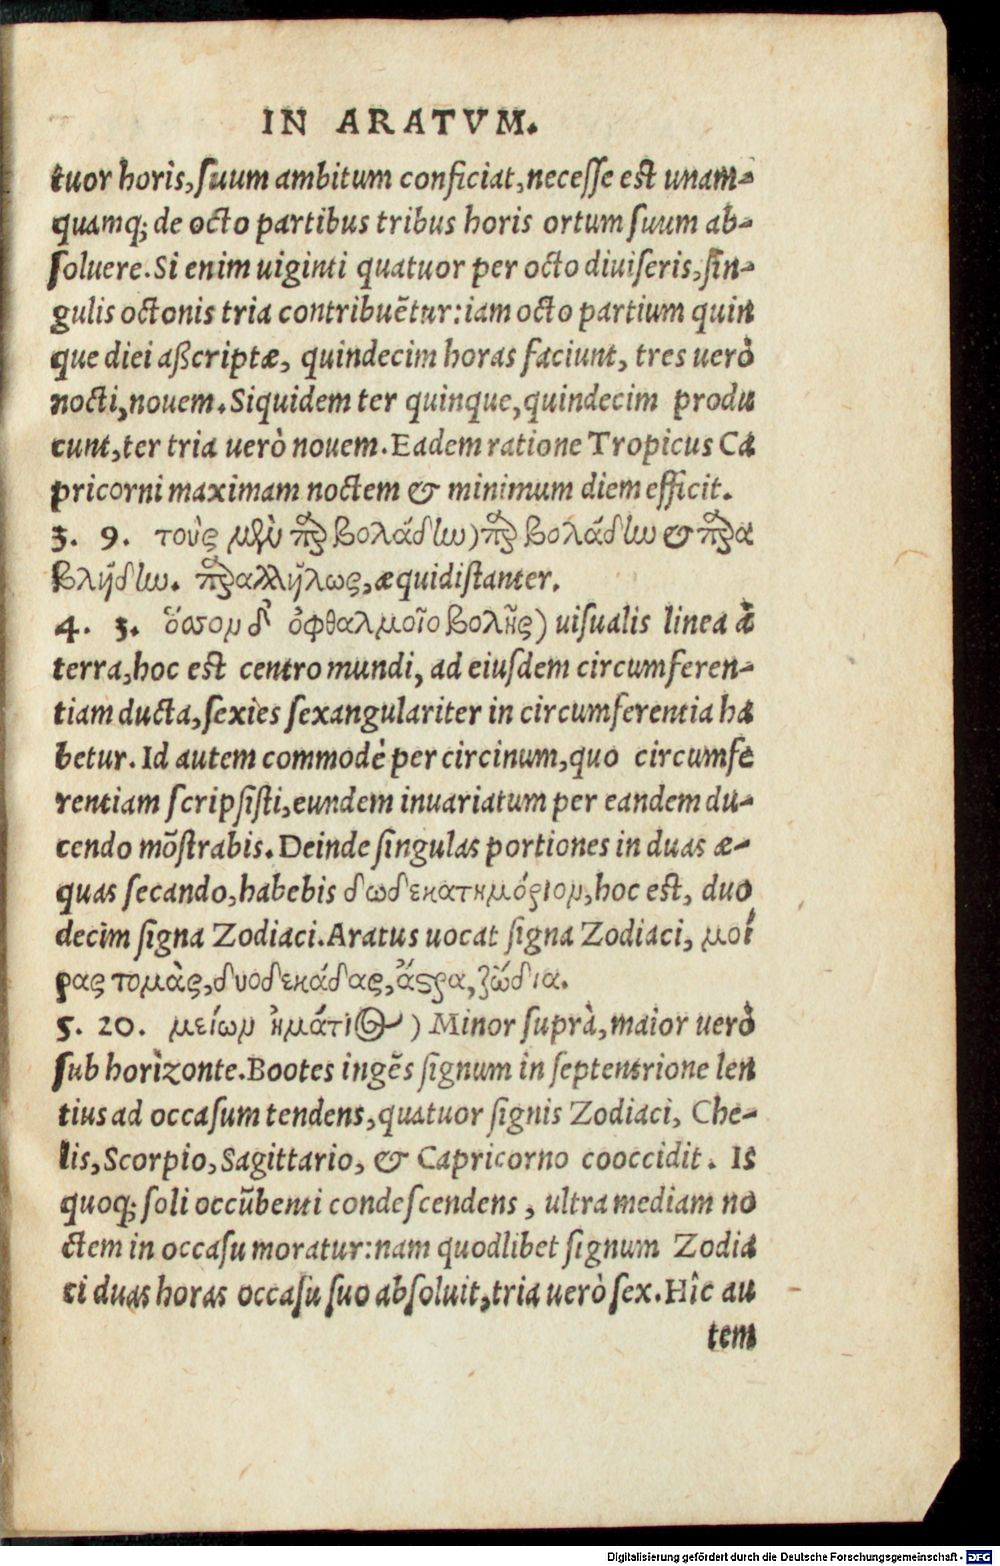 IN ARATVM.
tuor horis, suum ambitum conficiat, necesse est unam-
quamq; de octo partibus tribus horis ortum suum ab-
soluere. Si enim uiginti quatuor per octo diuiseris, sin-
gulis octonis tria contribuẽtur: iam octo partium quin
que diei aßcriptæ, quindecim horas faciunt, tres uerò
nocti, nouem. Siquidem ter quinque, quindecim produ
cunt, ter tria uerò nouem. Eadem ratione Tropicus Ca
pricorni maximam noctem & minimum diem efficit.
3. 9. τοὺς μὲν παρβολάδην) παρβολάδην & παρα
βλήδην. παραλλήλως, æquidistanter.
4. 3. ὅσσον δ' ὀφθαλμοῖο βολῆς) uisualis linea à
terra, hoc est centro mundi, ad eiusdem circumferen-
tiam ducta, sexies sexangulariter in circumferentia ha
betur. Id autem commodè per circinum, quo circumfe
rentiam scripsisti, eundem inuariatum per eandem du-
cendo mõstrabis. Deinde singulas portiones in duas æ-
quas secando, habebis δωδεκατημόριον, hoc est, duo
decim signa Zodiaci. Aratus uocat signa Zodiaci, μοί
ρας τομὰς, δυοδεκάδας, ἄστρα, ζώδια.
5. 20. μείων ἠμάτιος) Minor suprà, maior uerò
sub horizonte. Bootes ingẽs signum in septentrione len
tius ad occasum tendens, quatuor signis Zodiaci, Che-
lis, Scorpio, Sagittario, & Capricorno cooccidit. Is
quoq; soli occũbenti condescendens, ultra mediam no
ctem in occasu moratur: nam quodlibet signum Zodia
ci duas horas occasu suo absoluit, tria uerò sex. Hîc au
tem
Digitalisierung gefördert durch die Deutsche Forschungsgemeinschaft - DFG